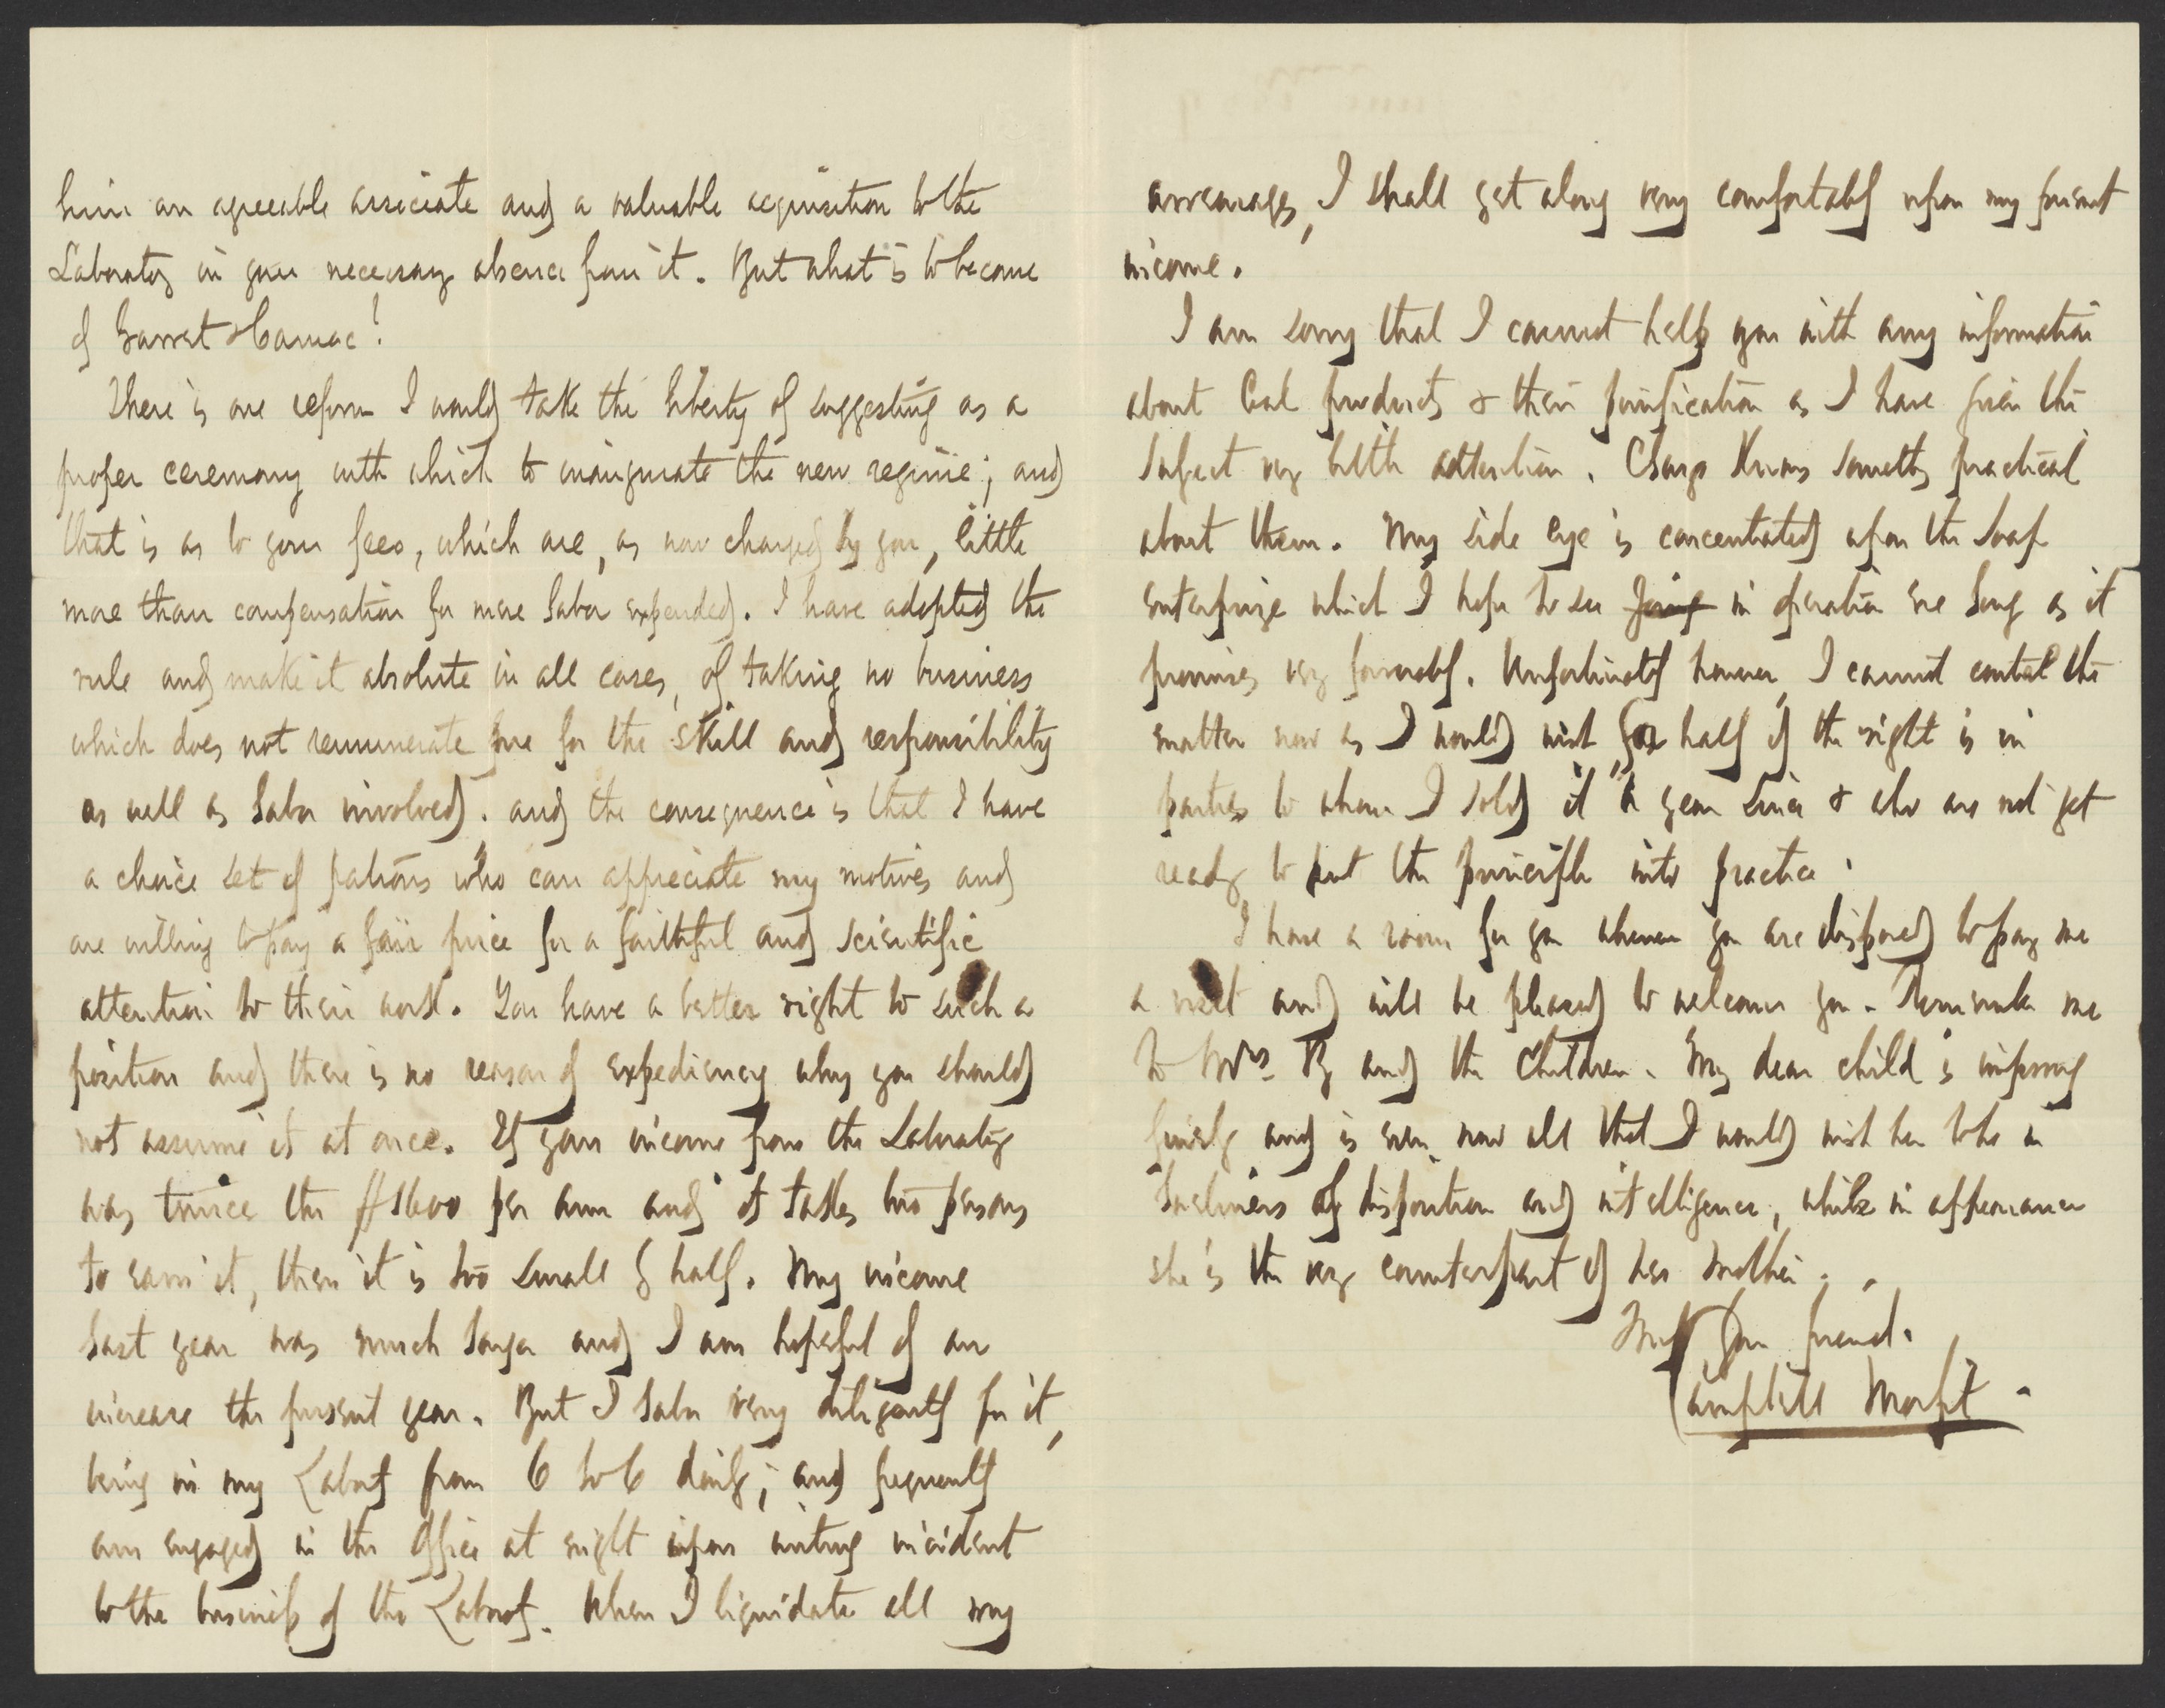 him an agreeable associate and a valuable acquisition to the
Laboratory in your necessary absence from it. But what is to become
of Garret &
There is one reform I would take the liberty of suggesting as a
proper ceremony with which to inaugurate the new regime; and
that is as to your fees, which are, as now charged by you, little
more than compensation for mere labor expended. I have adopted the
rule and make it absolute in all cases, of taking no business
which does not remunerate me for the skill and responsibility
as well as labor involved. and the consequence is that I have
a choice set of patrons who can appreciate my motives and
are willing to pay a fair price for a faithful and scientific
attention to their work. You have a better right to such a
position and there is no reason of expediency why you should
not assume it at once. If your income from the Laboraty
was twice the $1600 per ann and it takes two persons
to earn it, then it is too small by half. My income
last year was much larger and I am hopeful of an
increase the present year. But I labor very diligently for it,
being in my Laboy from 6 to 6 daily; and frequently
am engaged in the Office at night upon writing incident
to the business of the Laboy. When I liquidate all my
arrearages, I shall get along very comfortably upon my present
income.
I am sorry that I cannot help you with any information
about Coal products & their purification as I have given the
subject very little attention. knows something practical
about them. My side eye is concentrated upon the Soap
enterprize which I hope to see in operation ere long as it
promises very favorably. Unfortunately however, I cannot control the
matter now as I would wish for half of the right is in
parties to whom I sold it a year since & who are not yet
ready to put the principle into practice.
I have a room for you whenever you are disposed to pay me
a visit and will be pleased to welcome you. Remember me
to Mrs. B and the Children. My dear child is improving
finely and is even now all that I would wish her to be in
loveliness of disposition and intelligence, while in appearance
she is the very counterpart of her mother.
Truly Your friend.
Campbell Morfit.